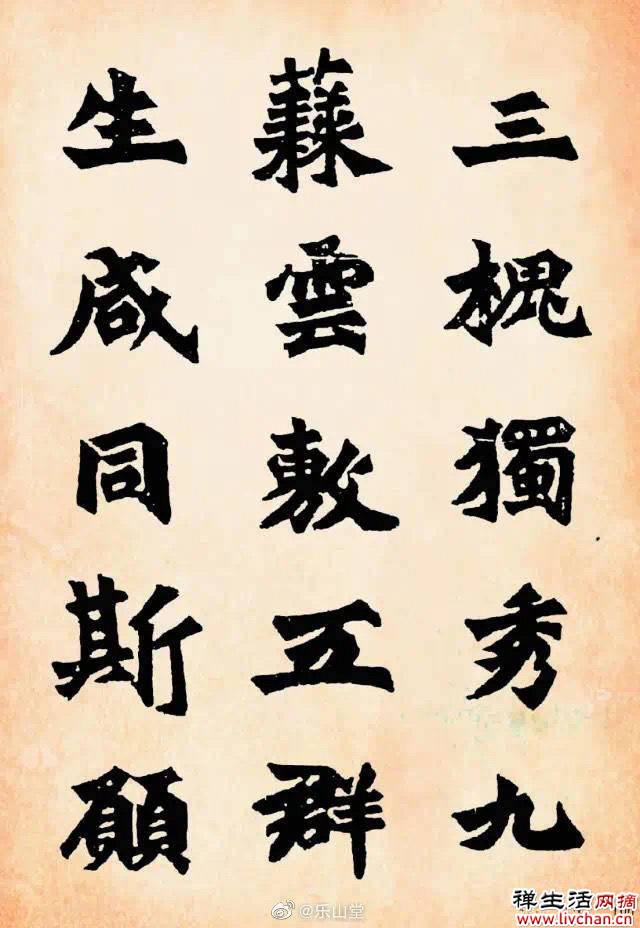 三槐獨秀九
蕀雲敷五群
生咸同斯願
@乐山堂
禅生活网摘
www.livchan.com